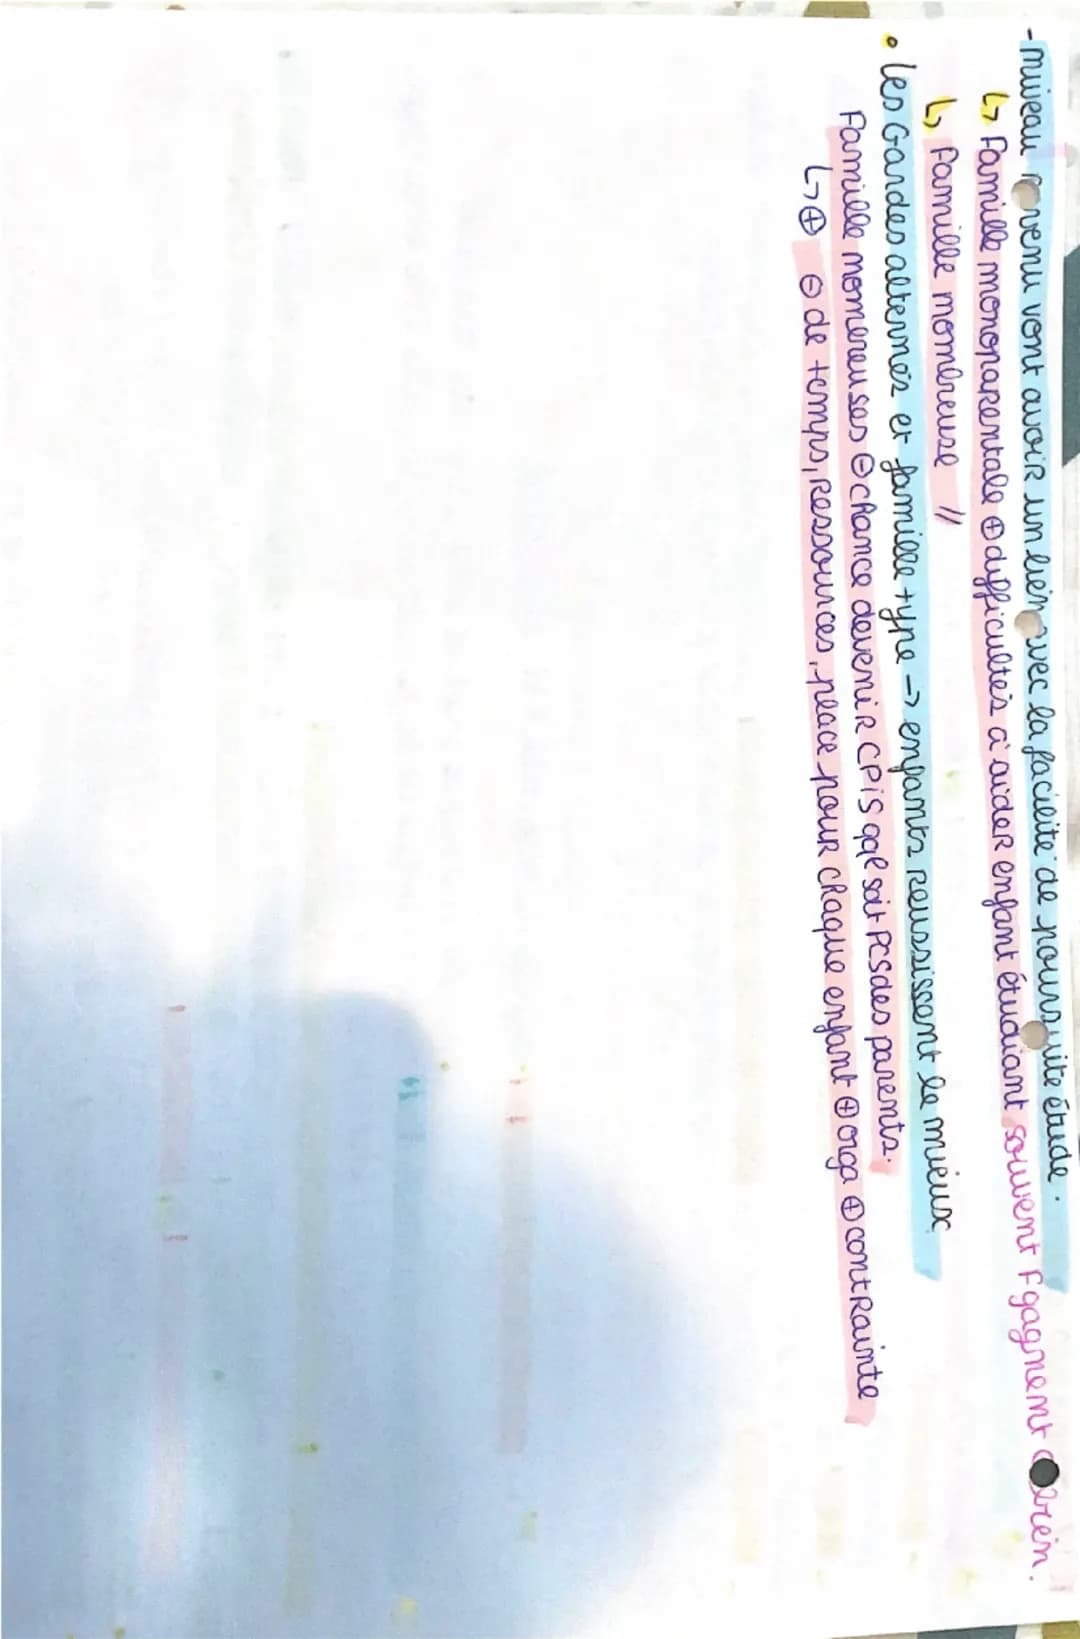 - niveau revenu vont avoir un lien avec la facilité de poursuite étude.
↳ Famille monoparentale ⊕ difficultés à aider enfant étudiant souvent F gagnent bien.
↳ Famille nombreuse //
• Les Gardes alternés et famille type → enfants réussissent le mieux
Famille nombreuses ⊖ chance devenir CPIS qql soit PCS des parents.
↳ ⊕ ⊖ de temps, ressources, place pour chaque enfant ⊕ orga ⊕ contrainte